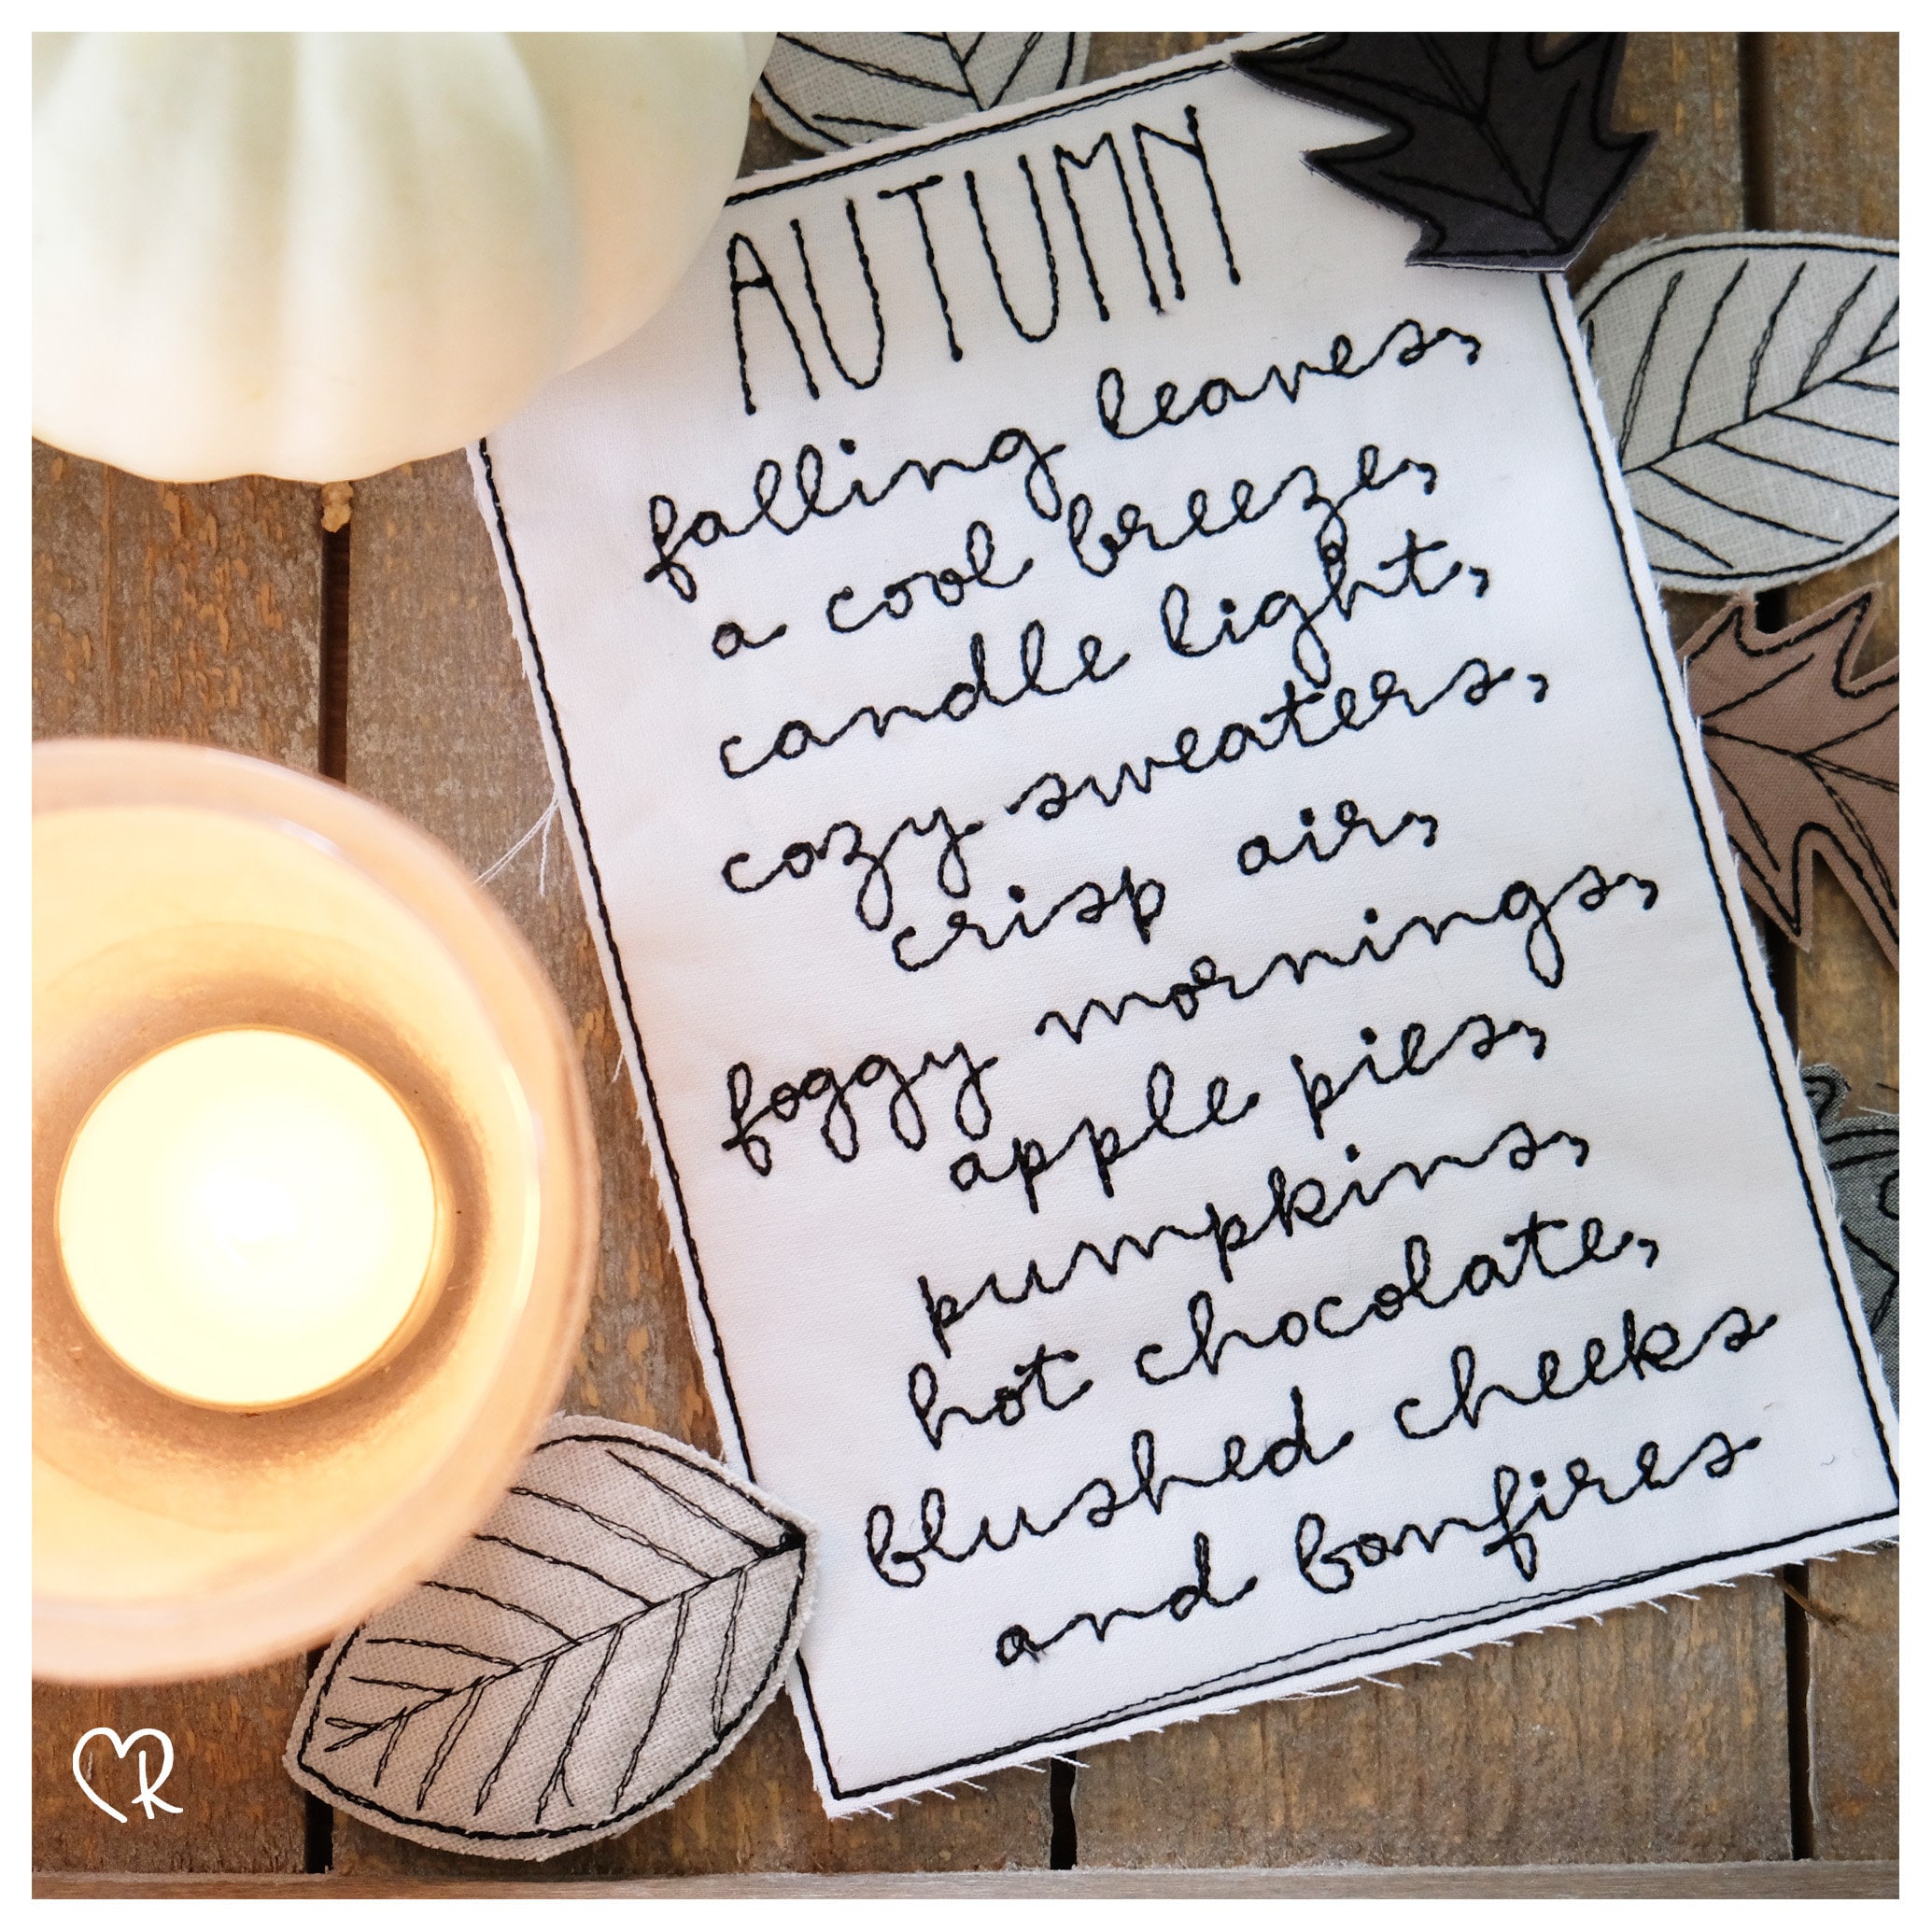 AUTUMN
falling leaves,
a cool breeze,
candle light,
cozy sweaters,
crisp air,
foggy mornings,
apple pies,
pumpkins,
hot chocolate,
blushed cheeks
and bonfires